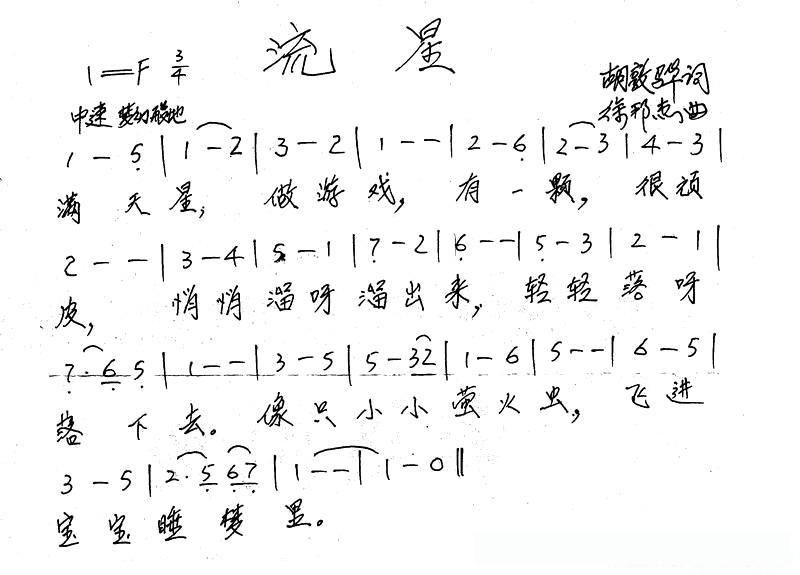 流 星
1=F 3/4
胡敦骅词
中速 梦幻般地
徐邦杰曲
1 - 5̣ | 1 - 2 | 3 - 2 | 1 - - | 2 - 6̣ | 2 - 3 | 4 - 3 |
满 天 星, 做 游 戏, 有 一 颗, 很 顽
2 - - | 3 - 4 | 5 - 1 | 7̣ - 2 | 6̣ - - | 5̣ - 3 | 2 - 1 |
皮, 悄 悄 溜 呀 溜 出 来, 轻 轻 落 呀
7̣ · 6̣ 5̣ | 1 - - | 3 - 5 | 5 - 32 | 1 - 6 | 5 - - | 6 - 5 |
落 下 去。 像 只 小 小 萤 火 虫, 飞 进
3 - 5 | 2 · 5̣ 6̣7̣ | 1 - - | 1 - 0 ‖
宝 宝 睡 梦 里。